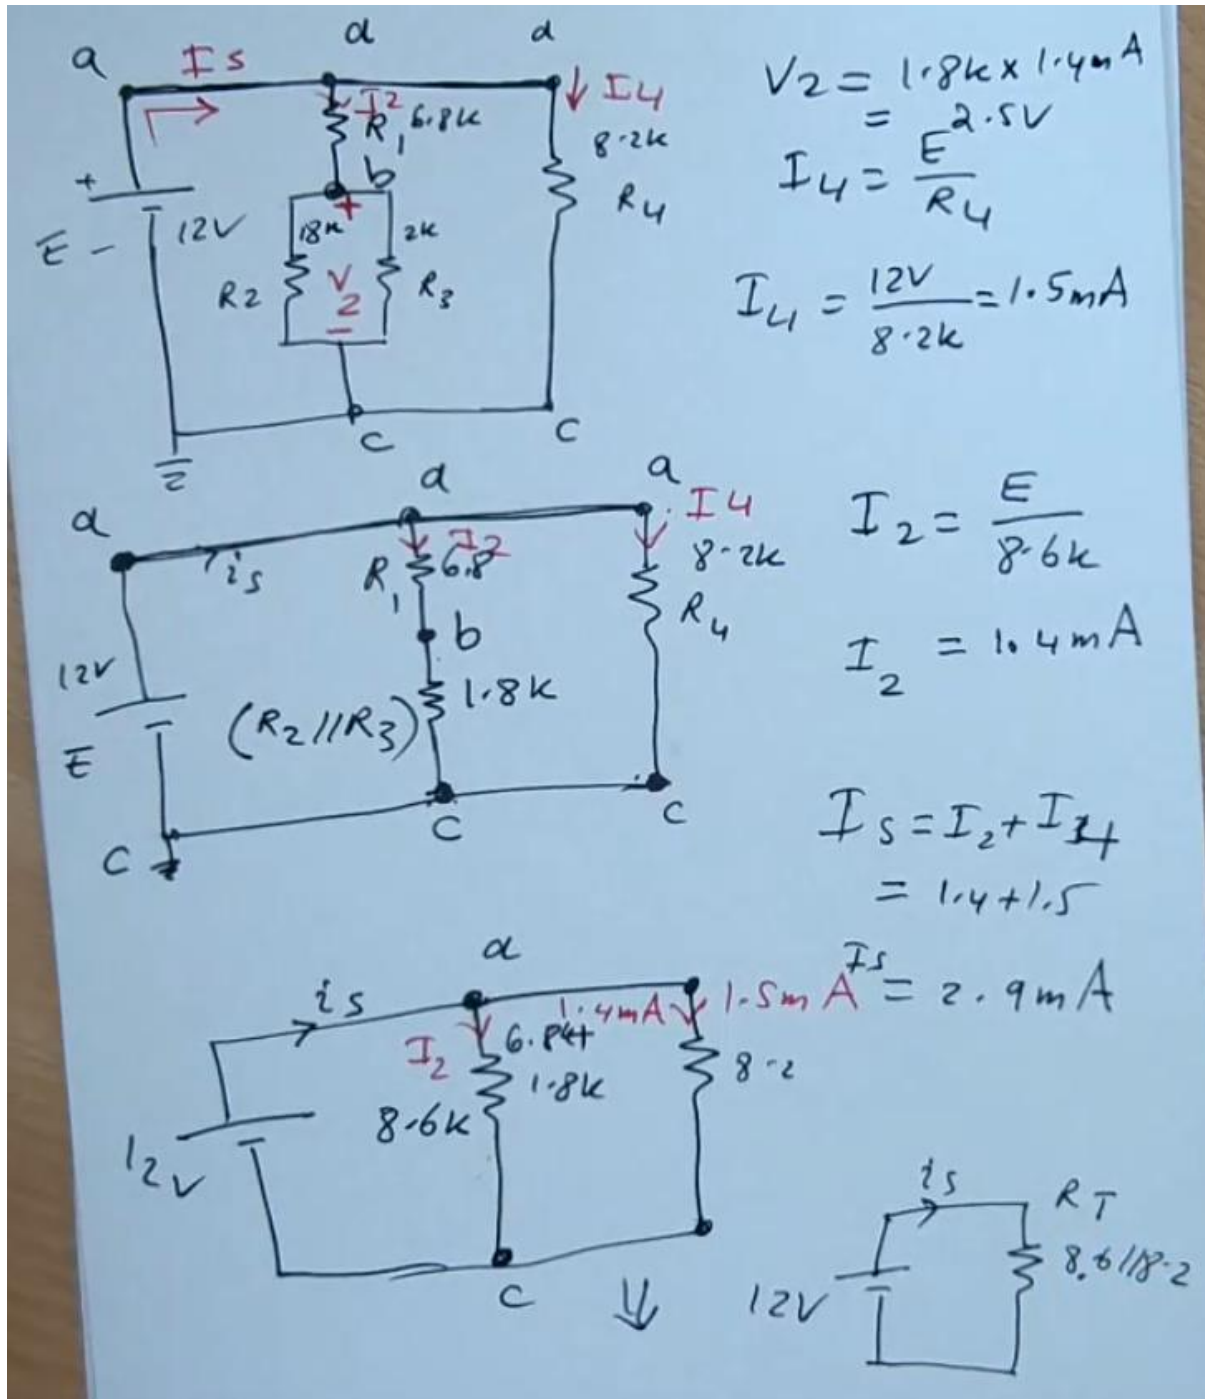 a
Is
a
a
I2
R1 6.8K
I4
8.2K
R4
b
+
+
E -
12V
18K
2K
R2
V2
R3
-
C
C
V2 = 1.8K x 1.4mA
= 2.5V
I4 = E/R4
I4 = 12V/8.2K = 1.5mA
a
a
a
is
I2
R1 6.8
I4
8.2K
R4
b
12V
E
(R2//R3)
1.8K
C
C
C
I2 = E/8.6K
I2 = 1.4mA
Is = I2 + I4
= 1.4+1.5
Is = 2.9mA
a
is
1.4mA
1.5mA
I2
1.8K
8.6K
8.2
12V
C
is
RT
8.6//8.2
12V